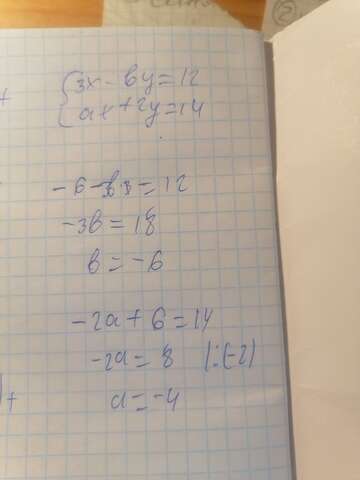 {3x - by = 12
ax + 2y = 14
-6 - 3b = 12
-3b = 18
b = -6
-2a + 6 = 14
-2a = 8 |:(-2)
a = -4